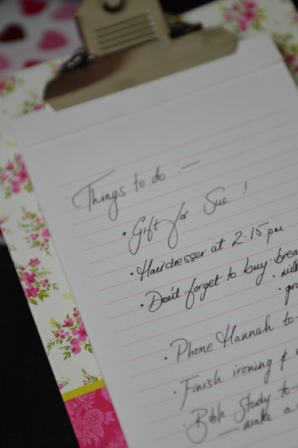 Things to do :-
• Gift for Sue !
• Hairdresser at 2.15pm
• Don't forget to buy: brea
• Phone Hannah to
• Finish ironing
• Bible Study to
make a